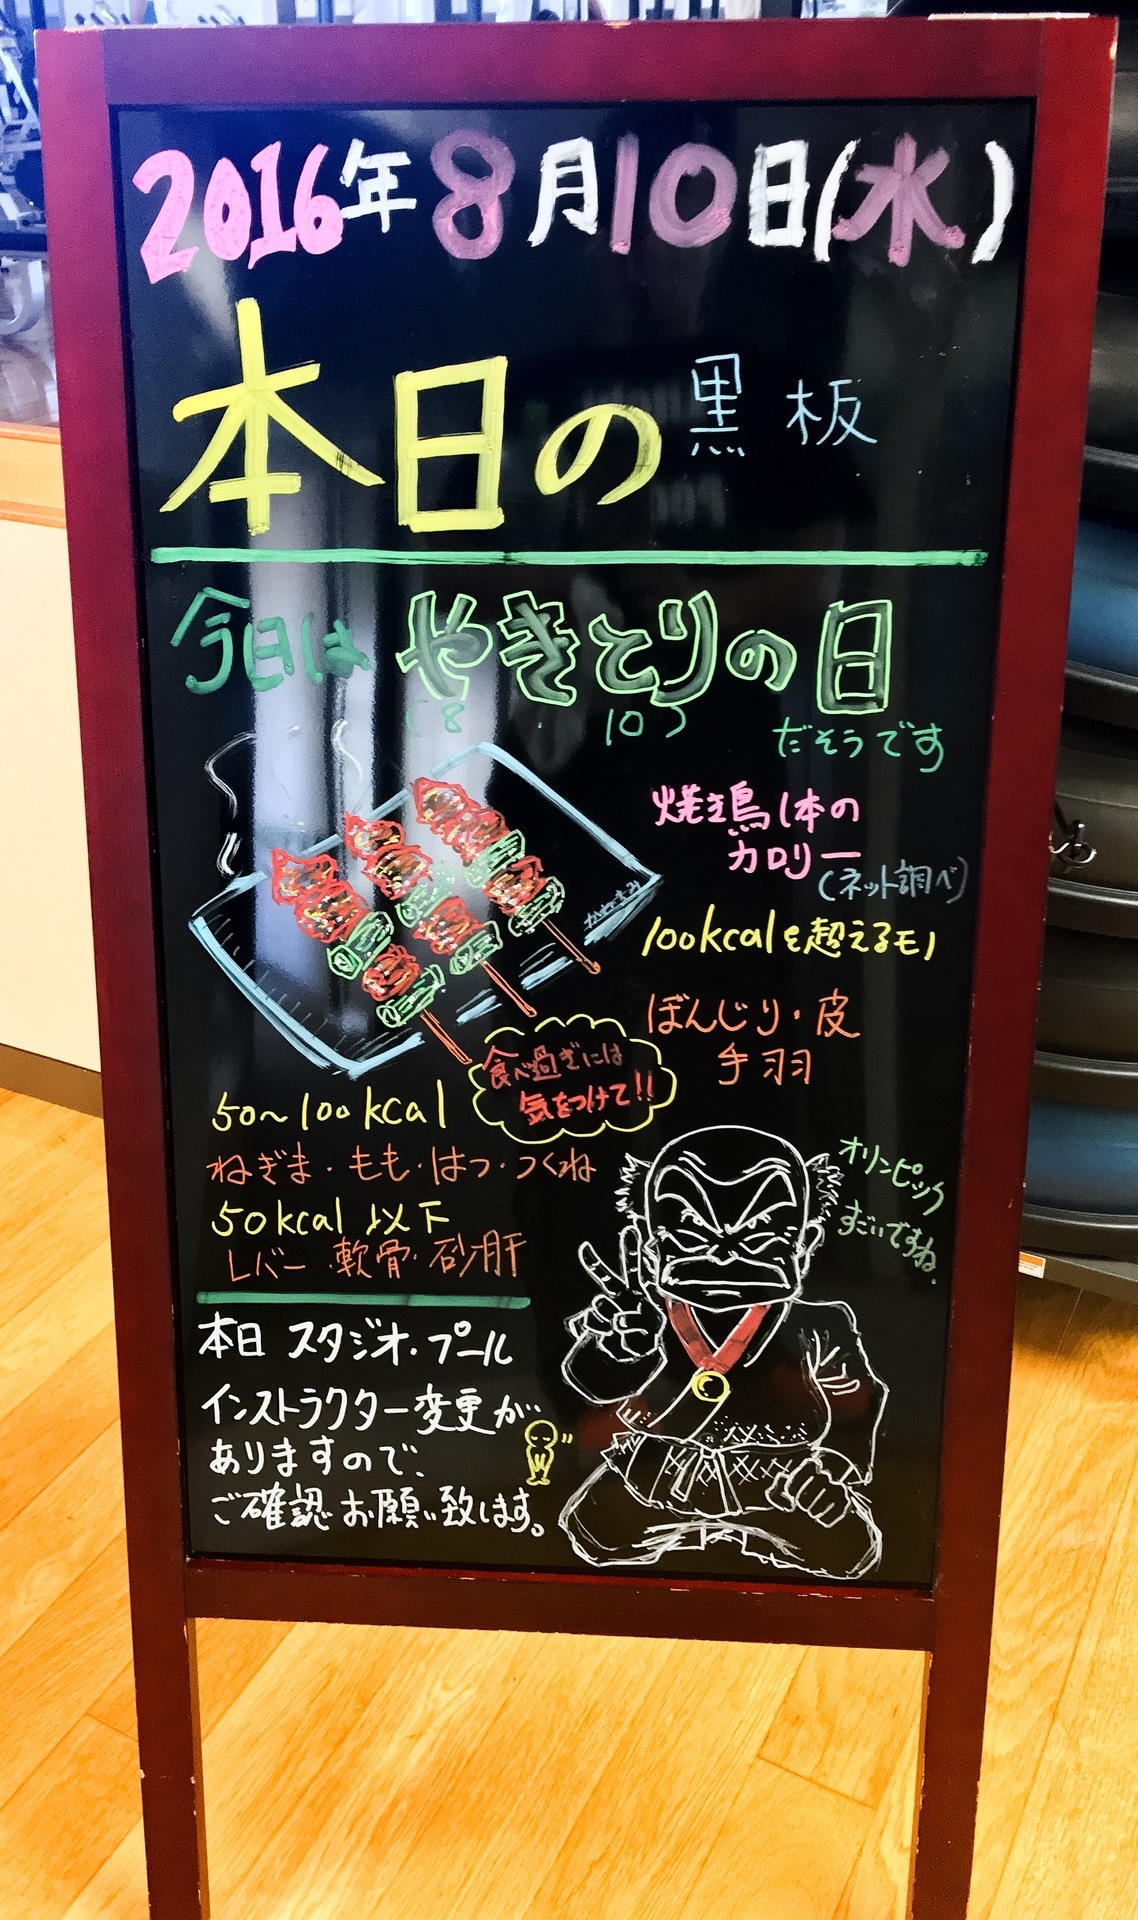 2016年8月10日(水)
本日の黒板
今日はやきとりの日
(8 . 10)
だそうです
焼き鳥1本の
カロリー
(ネット調べ)
100kcalを超えるモノ
ぼんじり・皮
手羽
食べ過ぎには
気をつけて!!
50〜100kcal
ねぎま・もも・はつ・つくね
50kcal以下
レバー・軟骨・砂肝
オリンピック
すごいですね.
本日 スタジオ・プール
インストラクター変更が
ありますので、
ご確認お願い致します。